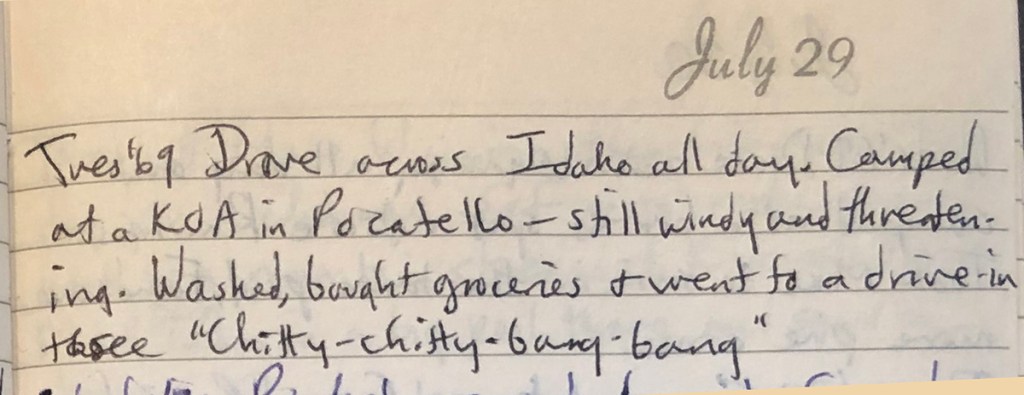 July 29
Tues '69 Drove across Idaho all day. Camped
at a KOA in Pocatello – still windy and threaten-
ing. Washed, bought groceries + went to a drive-in
to see "Chitty-chitty-bang-bang"